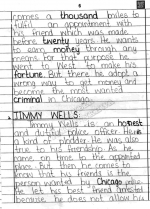 6
comes a thousand miles to
fulfil an appointment with
his friend which was made
before twenty years. He wants
to earn money through any
means for that purpose he
went to West to make his
fortune. But there he adopt a
wrong way to get money and
become the most wanted
criminal in Chicago.
JIMMY WELLS:
Jimmy Wells is an honest
and dutiful police officer. He is
a kind of plodder. He was also
true to his friendship. As he
came on time to the appointed
place. But then he comes to
know that his friend is the
person wanted in Chicago police
He let his best friend arrest
because he does not allow his